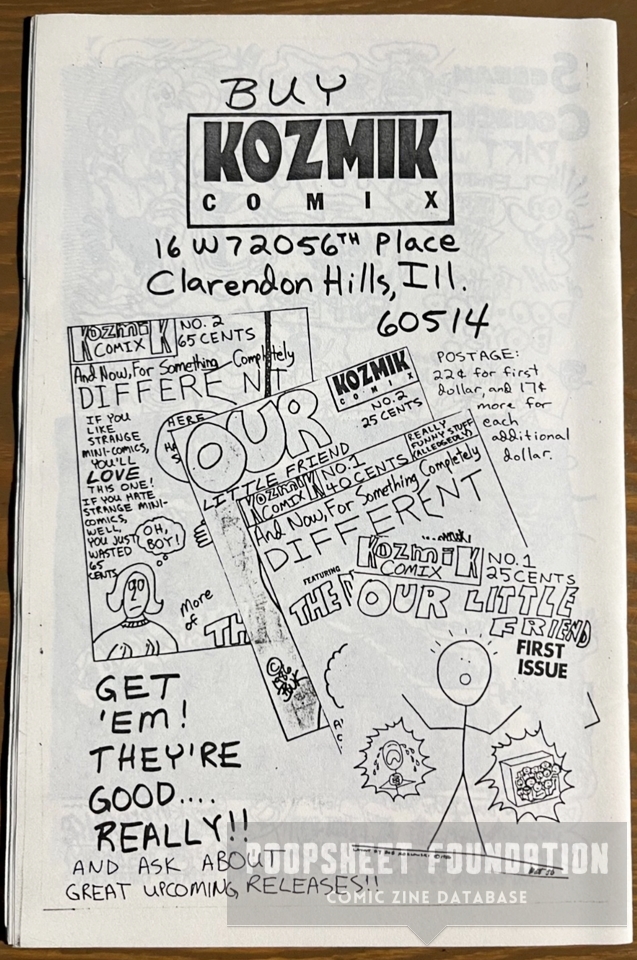 BUY
KOZMIK
COMIX
16 W 72056TH Place
Clarendon Hills, Ill.
60514
POSTAGE:
22¢ for first
dollar, and 17¢
more for
each
additional
dollar.
KOZMIK
COMIX
NO. 2
65 CENTS
And Now, For Something Completely
DIFFERENT
IF YOU
LIKE
STRANGE
MINI-COMICS,
YOU'LL
LOVE
THIS ONE!
IF YOU HATE
STRANGE MINI-
COMICS,
WELL,
YOU JUST
WASTED
65
CENTS
OH,
BOY!
HERE
more
of
TH
KOZMIK
COMIX
NO. 2
25 CENTS
OUR
LITTLE FRIEND
KOZMIK
COMIX
NO. 1
40 CENTS
REALLY
FUNNY STUFF
(ALLEDGEDLY)
And Now, For Something Completely
DIFFERENT
FEATURING
THE
KOZMIK
COMIX
NO. 1
25 CENTS
OUR LITTLE
FRIEND
FIRST
ISSUE
GET
'EM!
THEY'RE
GOOD....
REALLY!!
AND ASK ABOU
GREAT UPCOMING RELEASES!!
POOPSHEET FOUNDATION
COMIC ZINE DATABASE